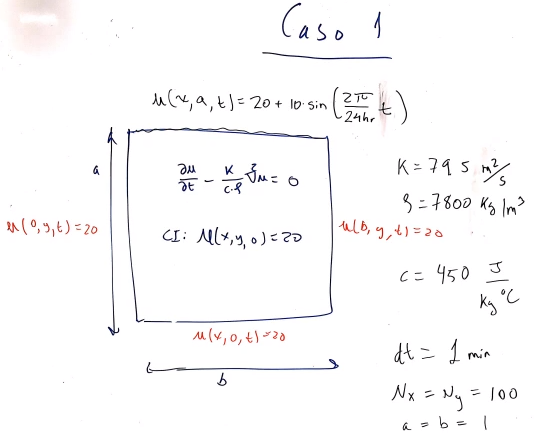 Caso 1
u(x,a,t) = 20 + 10·sin(2π/24hr t)
a
∂u/∂t - K/c·ρ ∇²u = 0
CI: u(x,y,0) = 20
u(0,y,t) = 20
u(b,y,t) = 20
u(x,0,t) = 20
b
K = 79 5 m²/s
ρ = 7800 Kg/m³
c = 450 J/Kg°C
dt = 1 min
Nx = Ny = 100
a = b = 1